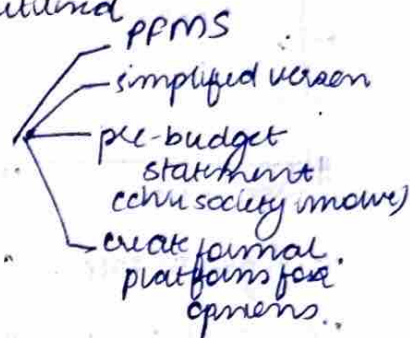 PFMS
simplified version
pre-budget
statement
(civil society involve)
create formal
platforms for
opinions.